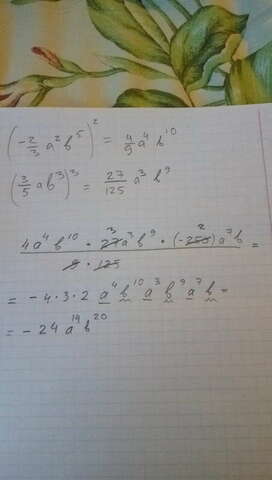 (-2/3 a² b⁵)² = 4/9 a⁴ b¹⁰
(3/5 ab³)³ = 27/125 a³ b⁹
4a⁴b¹⁰ · 27³a³b⁹ · (-250²)a⁷b / 9 · 125 =
= -4·3·2 a⁴b¹⁰a³b⁹a⁷b =
= -24a¹⁴b²⁰